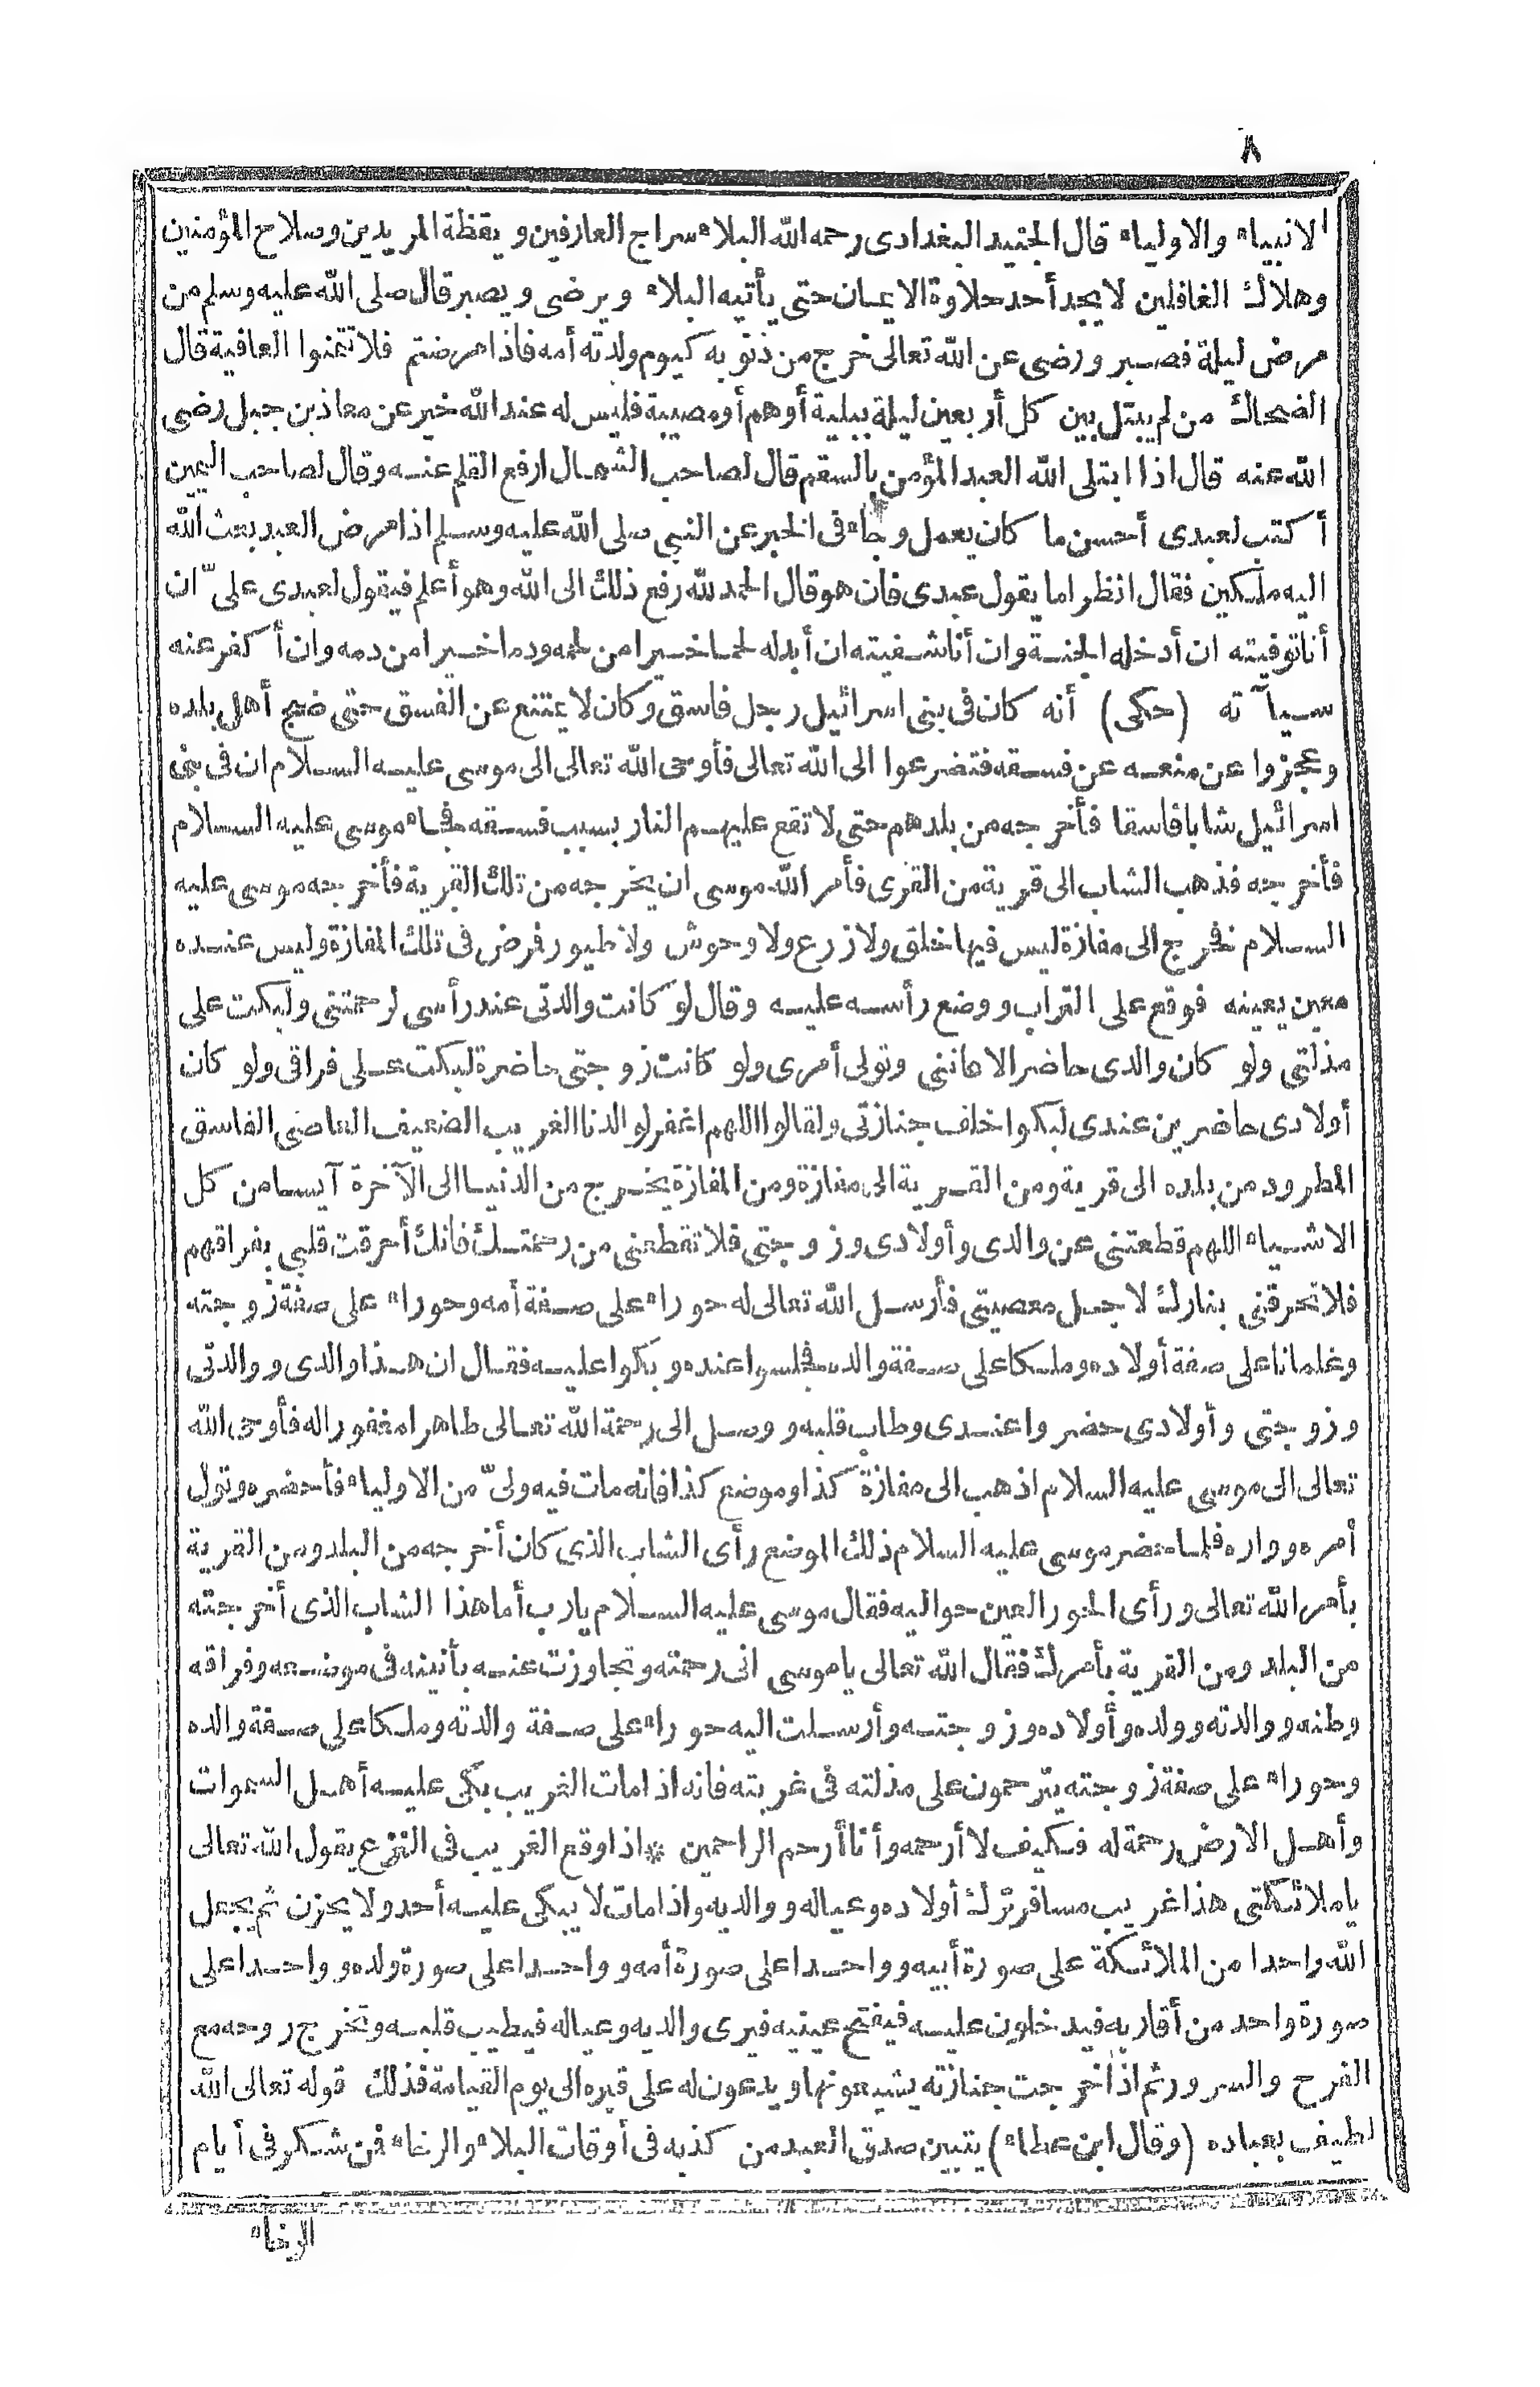 ٨
الانبياء والاولياء قال الجنيد البغدادى رحمه الله البلاء سراج العارفين ويقظة المريدين وصلاح المؤمنين
وهلاك الغافلين لا يجد أحد حلاوة الايمان حتى يأتيه البلاء ويرضى ويصبر قال صلى الله عليه وسلم من
مرض ليلة فصبر ورضى عن الله تعالى خرج من ذنوبه كيوم ولدته أمه فاذا مرضتم فلا تتمنوا العافية قال
الضحاك من لم يبتل بين كل أربعين ليلة ببلية أو هم أو مصيبة فليس له عند الله خير عن معاذ بن جبل رضى
الله عنه قال اذا ابتلى الله العبد المؤمن بالسقم قال لصاحب الشمال ارفع القلم عنه وقال لصاحب اليمين
أكتب لعبدى أحسن ما كان يعمل وجاء فى الخبر عن النبى صلى الله عليه وسلم اذا مرض العبد بعث الله
اليه ملكين فقال انظرا ما يقول عبدى فان هو قال الحمد لله رفع ذلك الى الله وهو أعلم فيقول لعبدى علىّ ان
أنا توفيته ان أدخله الجنة وان أنا شفيته ان أبدله لحما خيرا من لحمه ودما خيرا من دمه وان أكفر عنه
سيآته (حكى) أنه كان فى بنى اسرائيل رجل فاسق وكان لا يمتنع عن الفسق حتى ضج أهل بلده
وعجزوا عن منعه عن فسقه فتضرعوا الى الله تعالى فأوحى الله تعالى الى موسى عليه السلام ان فى بنى
اسرائيل شابا فاسقا فأخرجه من بلدهم حتى لا تقع عليهم النار بسبب فسقه فجاء موسى عليه السلام
فأخرجه فذهب الشاب الى قرية من القرى فأمر الله موسى ان يخرجه من تلك القرية فأخرجه موسى عليه
السلام فخرج الى مفازة ليس فيها خلق ولا زرع ولا وحوش ولا طيور فمرض فى تلك المفازة وليس عنده
معين يعينه فوقع على التراب ووضع رأسه عليه وقال لو كانت والدتى عند رأسى لرحمتنى ولبكت على
مذلتى ولو كان والدى حاضرا لاعاننى وتولى أمرى ولو كانت زوجتى حاضرة لبكت على فراقى ولو كان
أولادى حاضرين عندى لبكوا خلف جنازتى ولقالوا اللهم اغفر لوالدنا الغريب الضعيف العاصى الفاسق
المطرود من بلده الى قرية ومن القرية الى مفازة ومن المفازة يخرج من الدنيا الى الآخرة آيسا من كل
الاشياء اللهم قطعتنى عن والدى وأولادى وزوجتى فلا تقطعنى من رحمتك فانك أحرقت قلبى بفراقهم
فلا تحرقنى بنارك لاجل معصيتى فأرسل الله تعالى له حوراء على صفة أمه وحوراء على صفة زوجته
وغلمانا على صفة أولاده وملكا على صفة والده فجلسوا عنده وبكوا عليه فقال ان هذا والدى ووالدتى
وزوجتى وأولادى حضروا عندى وطاب قلبه ووصل الى رحمة الله تعالى طاهرا مغفورا له فأوحى الله
تعالى الى موسى عليه السلام اذهب الى مفازة كذا وموضع كذا فانه مات فيه ولىّ من الاولياء فأحضره وتول
أمره وواره فلما حضر موسى عليه السلام ذلك الموضع رأى الشاب الذى كان أخرجه من البلد ومن القرية
بأمر الله تعالى ورأى الحور العين حواليه فقال موسى عليه السلام يارب أما هذا الشاب الذى أخرجته
من البلد ومن القرية بأمرك فقال الله تعالى يا موسى انى رحمته وتجاوزت عنه بأنينه فى موضعه وفراقه
وطنه ووالدته وولده وأولاده وزوجته وأرسلت اليه حوراء على صفة والدته وملكا على صفة والده
وحوراء على صفة زوجته يترحمون على مذلته فى غربته فانه اذا مات الغريب بكى عليه أهل السموات
وأهل الارض رحمة له فكيف لا أرحمه وأنا أرحم الراحمين * اذا وقع الغريب فى النزع يقول الله تعالى
يا ملائكتى هذا غريب مسافر ترك أولاده وعياله ووالديه واذا مات لا يبكى عليه أحد ولا يحزن ثم يجعل
الله واحدا من الملائكة على صورة أبيه وواحدا على صورة أمه وواحدا على صورة ولده وواحدا على
صورة واحد من أقاربه فيدخلون عليه فيفتح عينيه فيرى والديه وعياله فيطيب قلبه وتخرج روحه مع
الفرح والسرور ثم اذا أخرجت جنازته يشيعونها ويدعون له على قبره الى يوم القيامة فذلك قوله تعالى الله
لطيف بعباده (وقال ابن عطاء) يتبين صدق العبد من كذبه فى أوقات البلاء والرخاء فمن شكر فى أيام
الرخاء